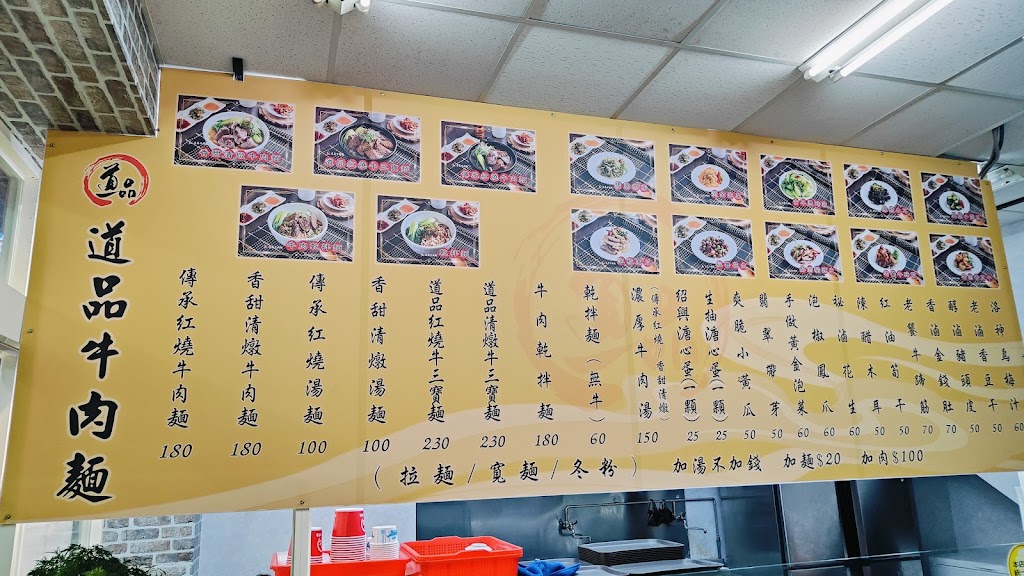 道品
道品牛肉麵
傳承紅燒牛肉麵 180
香甜清燉牛肉麵 180
傳承紅燒湯麵 100
香甜清燉湯麵 100
道品紅燒牛三寶麵 230
道品清燉牛三寶麵 230
牛肉乾拌麵 180
乾拌麵(無牛) 60
濃厚牛肉湯(傳承紅燒/香甜清燉) 150
紹興溏心蛋(1顆) 25
生抽溏心蛋(1顆) 25
爽脆小黃瓜 50
翡翠帶芽 50
手做黃金泡菜 50
泡椒鳳爪 60
祕滷花生 60
陳醋木耳 50
紅油筍干 50
老饕牛蹄筋 70
香滷金錢肚 70
醇滷豬頭皮 50
老滷香豆干 50
洛神烏梅汁 60
(拉麵/寬麵/冬粉) 加湯不加錢 加麵$20 加肉$100